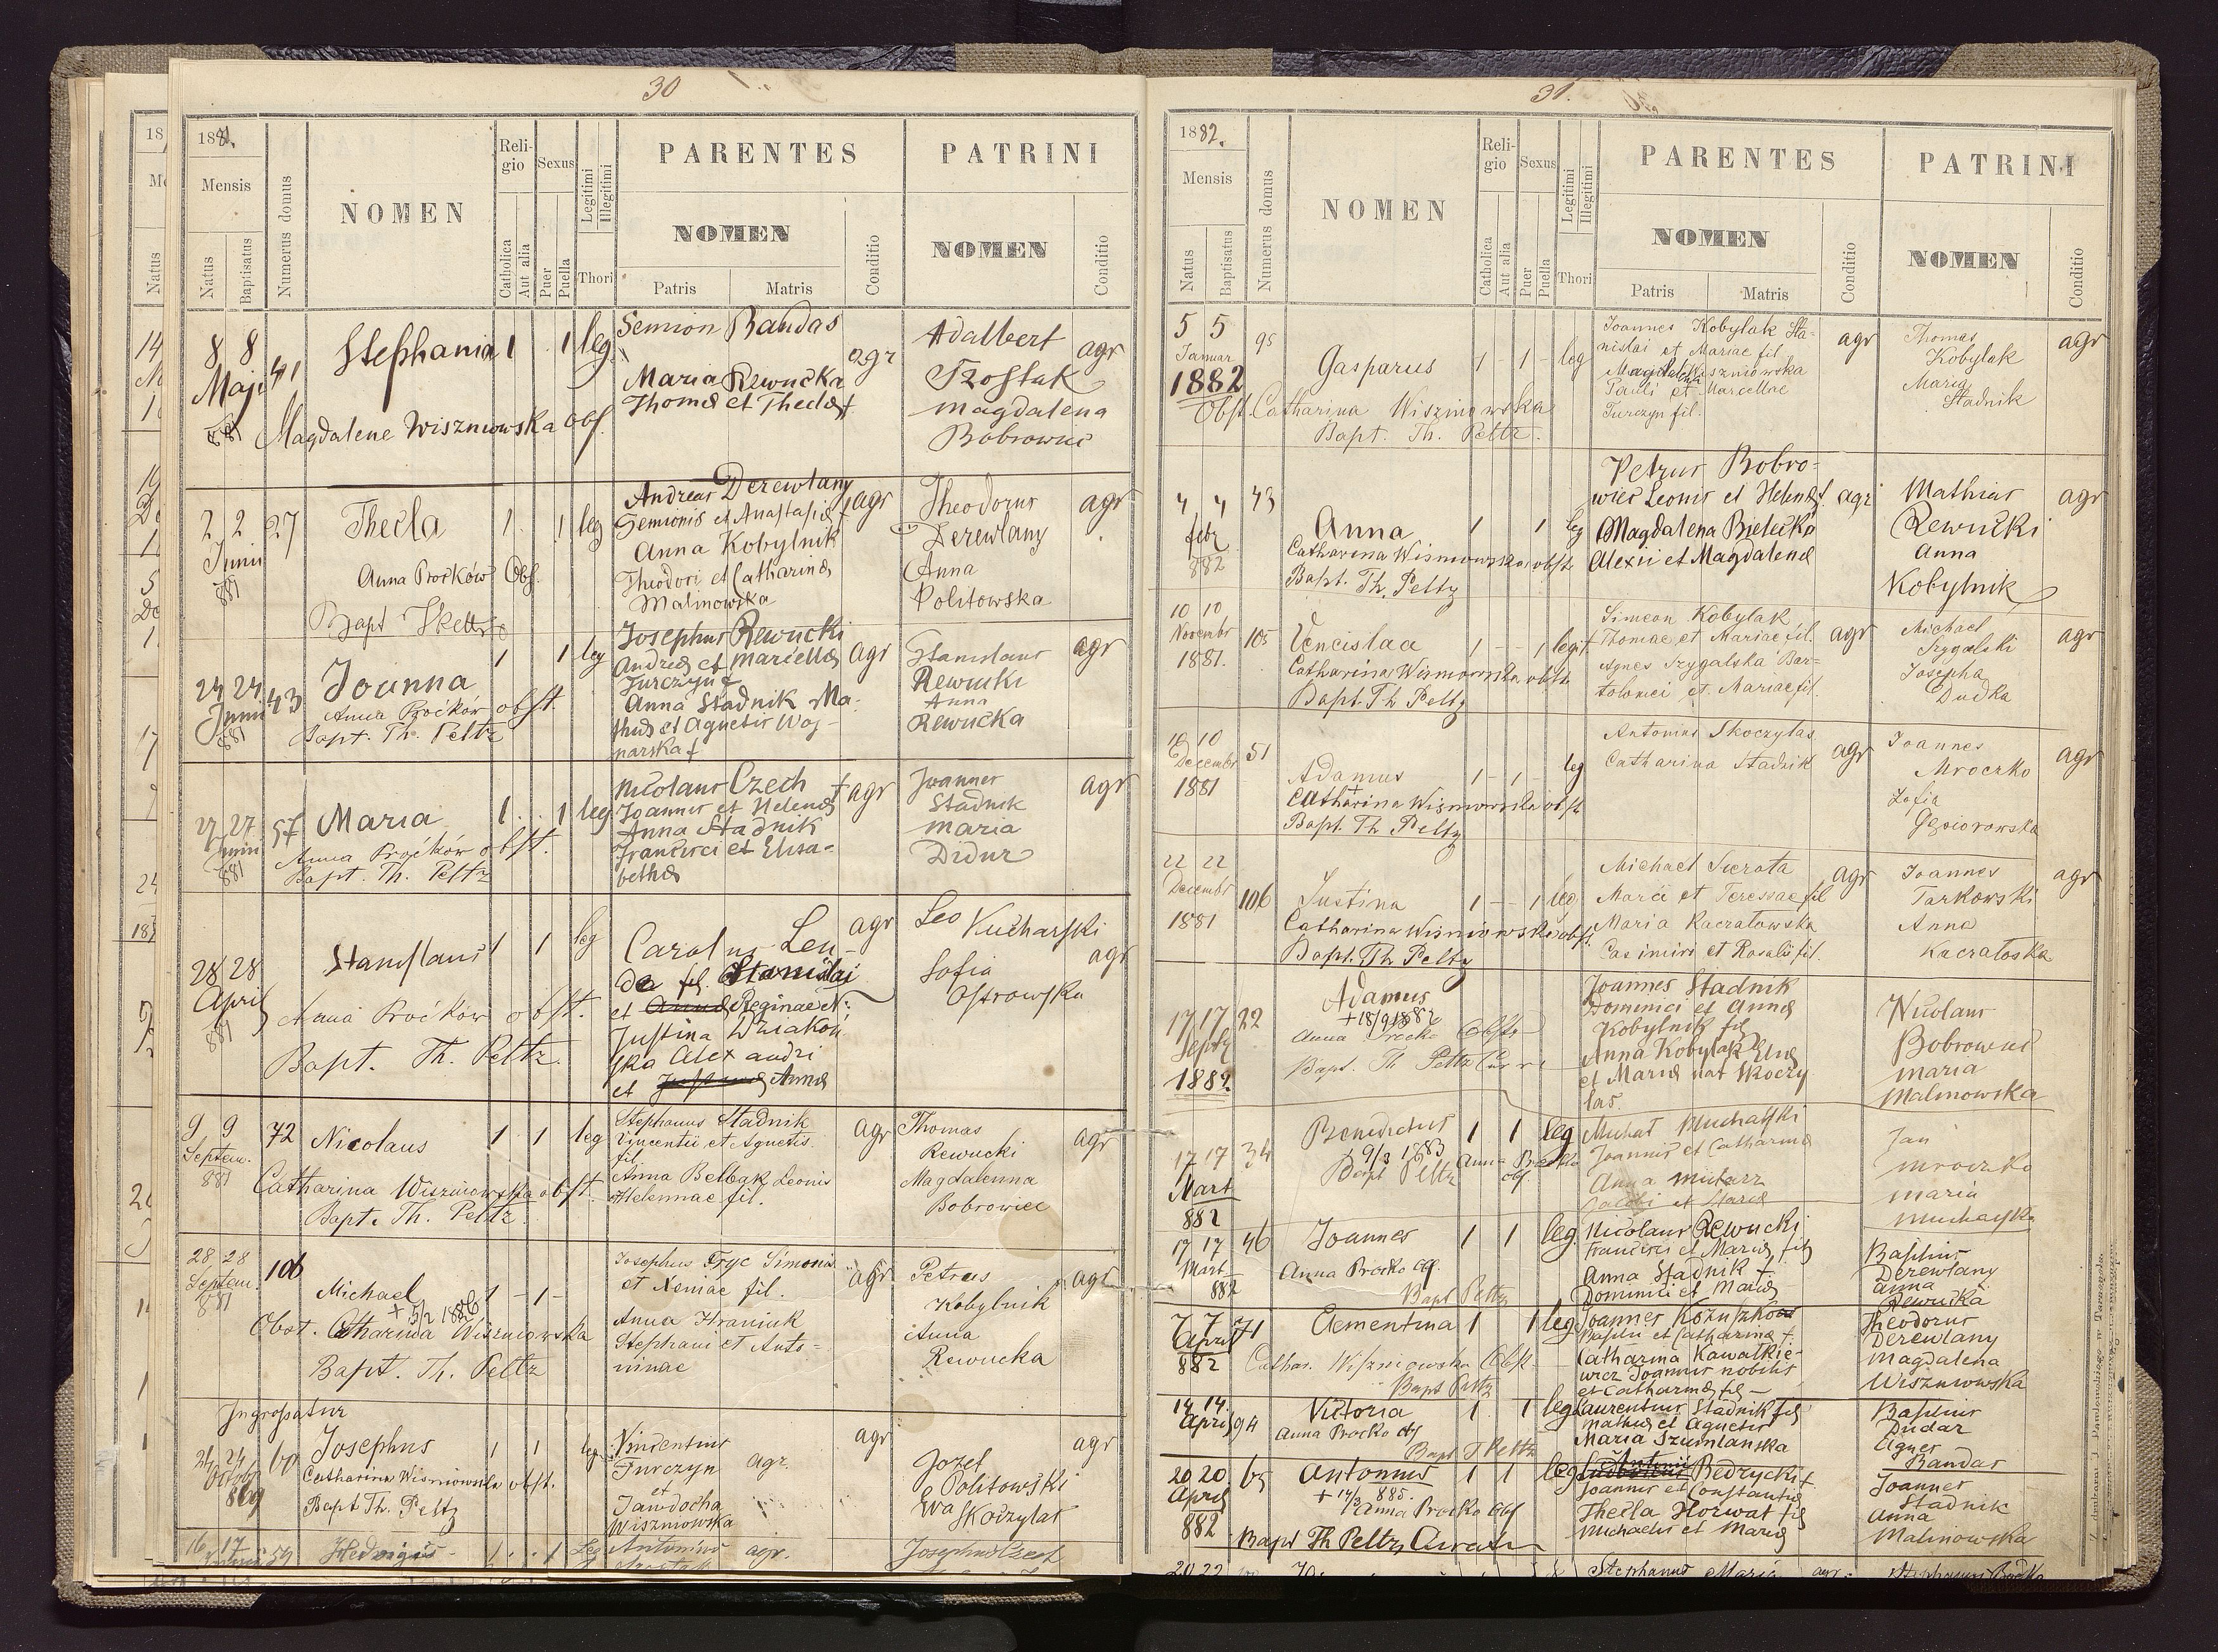 30
1881.
Mensis
Natus
Baptisatus
Numerus domus
NOMEN
Religio
Catholica
Aut alia
Sexus
Puer
Puella
Legitimi
Illegitimi
Thori
PARENTES
NOMEN
Patris
Matris
Conditio
PATRINI
NOMEN
Conditio
8 8
Maji 41
881
Stephania 1 1 leg
Magdalene Wiszniowska obs.
Semion Bandas
Maria Rewucka agr
Thomæ et Theclæ f
Adalbert agr
Szostak
Magdalena
Bobrowiec
2 2 27
Junii
881
Thecla 1 1 leg
Anna Proćków Obs.
Bapt
Andreas Derewlany agr
Semionis et Anastasiæ f
Anna Kobylnik
Theodori et Catharinæ
Malinowska
Theodorus agr
Derewlany
Anna
Politowska
24 24 43
Junii
881
Joanna 1 1 leg
Anna Proćków obst.
Bapt. Th. Peltz
Josephus Rewucki
Andreæ et Marcellæ agr
Turczyn f
Anna Stadnik Ma-
thæi et Agnetis Woj-
narska f
Stanislaus agr
Rewucki
Anna
Rewucka
27 27 57
Junii
881
Maria 1 1 leg
Anna Proćków obst.
Bapt. Th. Peltz
Nicolaus Czech agr
Joannis et Helenæ
Anna Stadnik
Francisci et Elisa-
bethæ
Joannes agr
Stadnik
Maria
Didur
28 28
April
881
Stanislaus 1 1 leg
Anna Proćków obst.
Bapt. Th. Peltz.
Carolus Len- agr
da fil. Stanislai
et Annæ Reginae N:
Justina
ska Alexandri
et Annæ
Leo Kucharski
agr
Sofia
Ostrowska
9 9 72
Septem.
881
Nicolaus 1 1 leg
Catharina Wiszniowska obst.
Bapt. Th. Peltz.
Stephanus Stadnik agr
Vincentii et Agnetis
fil.
Anna Belbak Leonis
Helennae fil.
Thomas agr
Rewucki
Magdalenna
Bobrowiec
28 28 106
Septem.
881
Michael 1 - 1 -
+ 5/2 1886
Obst. Catharina Wiszniowska
Bapt. Th. Peltz
Josephus Fryc Simonis agr
et Xeniae fil.
Anna Hraniuk
Stephani et Anto-
ninae
Petrus agr
Kobylnik
Anna
Rewucka
Ingrossatur
24 24 60
Octobr
869
Josephus 1 1 leg
Catharina Wisniowska obst.
Bapt. Th. Peltz
Vincentius agr
Turczyn agr.
et
Jawdocha
Wiszniowska
Jozef agr
Politowski
Ewa
Skoczylas
16 17 59
Hedvigis 1 . . 1 Leg
Antonius agr.
Josephus Czech
31.
1882.
Mensis
Natus
Baptisatus
Numerus domus
NOMEN
Religio
Catholica
Aut alia
Sexus
Puer
Puella
Legitimi
Illegitimi
Thori
PARENTES
NOMEN
Patris
Matris
Conditio
PATRINI
NOMEN
Conditio
5 5 95
Januar
1882
Gasparus 1 - 1 - leg
Obst. Catharina Wiszniowska
Bapt. Th. Peltz.
Joannes Kobylak Sta- agr
nislai et Mariae fil.
Magdalena Wiszniowska
Pauli et Marcellae
Turczyn fil.
Thomas agr
Kobylak
Maria
Stadnik
4 4 43
febr
882
Anna 1 1 leg
Catharina Wisniowska obst.
Bapt. Th. Peltz
Petrus Bobro-
wiec Leonis et Helenæ f. agr
Magdalena Bielecka
Alexii et Magdalenæ
Mathias agr
Rewucki
Anna
Kobylnik
10 10 105
Novembr
1881.
Vencislaa 1 - - 1 legit.
Catharina Wisniowska obst.
Bapt. Th Peltz
Simeon Kobylak
Thomae et Mariae fil. agr
Agnes Szygalska Bar-
tolomei et Mariae fil.
Michael agr
Szygalski
Josepha
Dudka
10 10 51
Decembr
1881
Adamus 1 - 1 - leg
+
Catharina Wisniowska obst.
Bapt. Th Peltz
Antonius Skoczylas agr
Catharina Stadnik
Joannes agr
Mroczko
Zofia
Gąsiorowska
22 22 106
Decembr
1881
Justina 1 - - 1 leg
Catharina Wisniowska obst.
Bapt. Th Peltz
Michael Sierota agr
Marci et Teressae fil
Maria Kacratowska
Casimiri et Rosalii fil.
Joannes agr
Tarkowski
Anna
Kacratoska
17 17 22
Septr
1882.
Adamus
+ 18/9 1882
Anna Proćko Obst.
Bapt. Th Peltz
Joannes Stadnik
Dominici et Annæ
Kobylnik fil
Anna Kobylak Eliæ
et Mariæ nat Skoczy
las.
Nicolaus
Bobrowiec
Maria
Malinowska
17 17 34
Mart
882
Benedictus 1 1 leg
+ 9/3 1883
Bapt Peltz Anna Proćko
obs.
Michał Muchayski
Joannis et Catharinæ
Anna
Jacobi et Mariæ
Jan
Mroczko
Maria
Muchayska
17 17 46
Mart
882
Joannes 1 1 leg
Anna Proćko
Bapt Peltz
Nicolaus Rewucki
Francisci et Mariæ fil
Anna Stadnik f
Dominici et Mariæ
Basilius
Derewlany
Anna
Rewucka
7 7 71
April
882
Clementina 1 1 leg
Cathar. Wiszniowska Obst.
Bapt Peltz
Joannes
Basilii et Catharinæ f.
Catharina Kawalkie-
wicz Joannis nobilis
et Catharinæ fil
Theodorus
Derewlany
Magdalena
Wiszniowska
14 14. 94
April
Victoria 1. 1 leg
Anna Proćko obs
Bapt T Peltz
Laurentius Stadnik fil
Mathei et Agnetis
Maria Szumlanska
Basilius
Dudar
Agnes
Bandas
20 20 65
April
882
Antonius 1 1 leg
+ 14/3 885.
Anna Proćko Obs
Bapt Th Peltz, Curatus
Antonii Bedrycki f
Joannis et Constantiæ
Thecla Horwat fil
Michaelis et Mariæ
Joannes
Stadnik
Anna
Malinowska
20 22
Stephanus Maria agr.
Stephanus